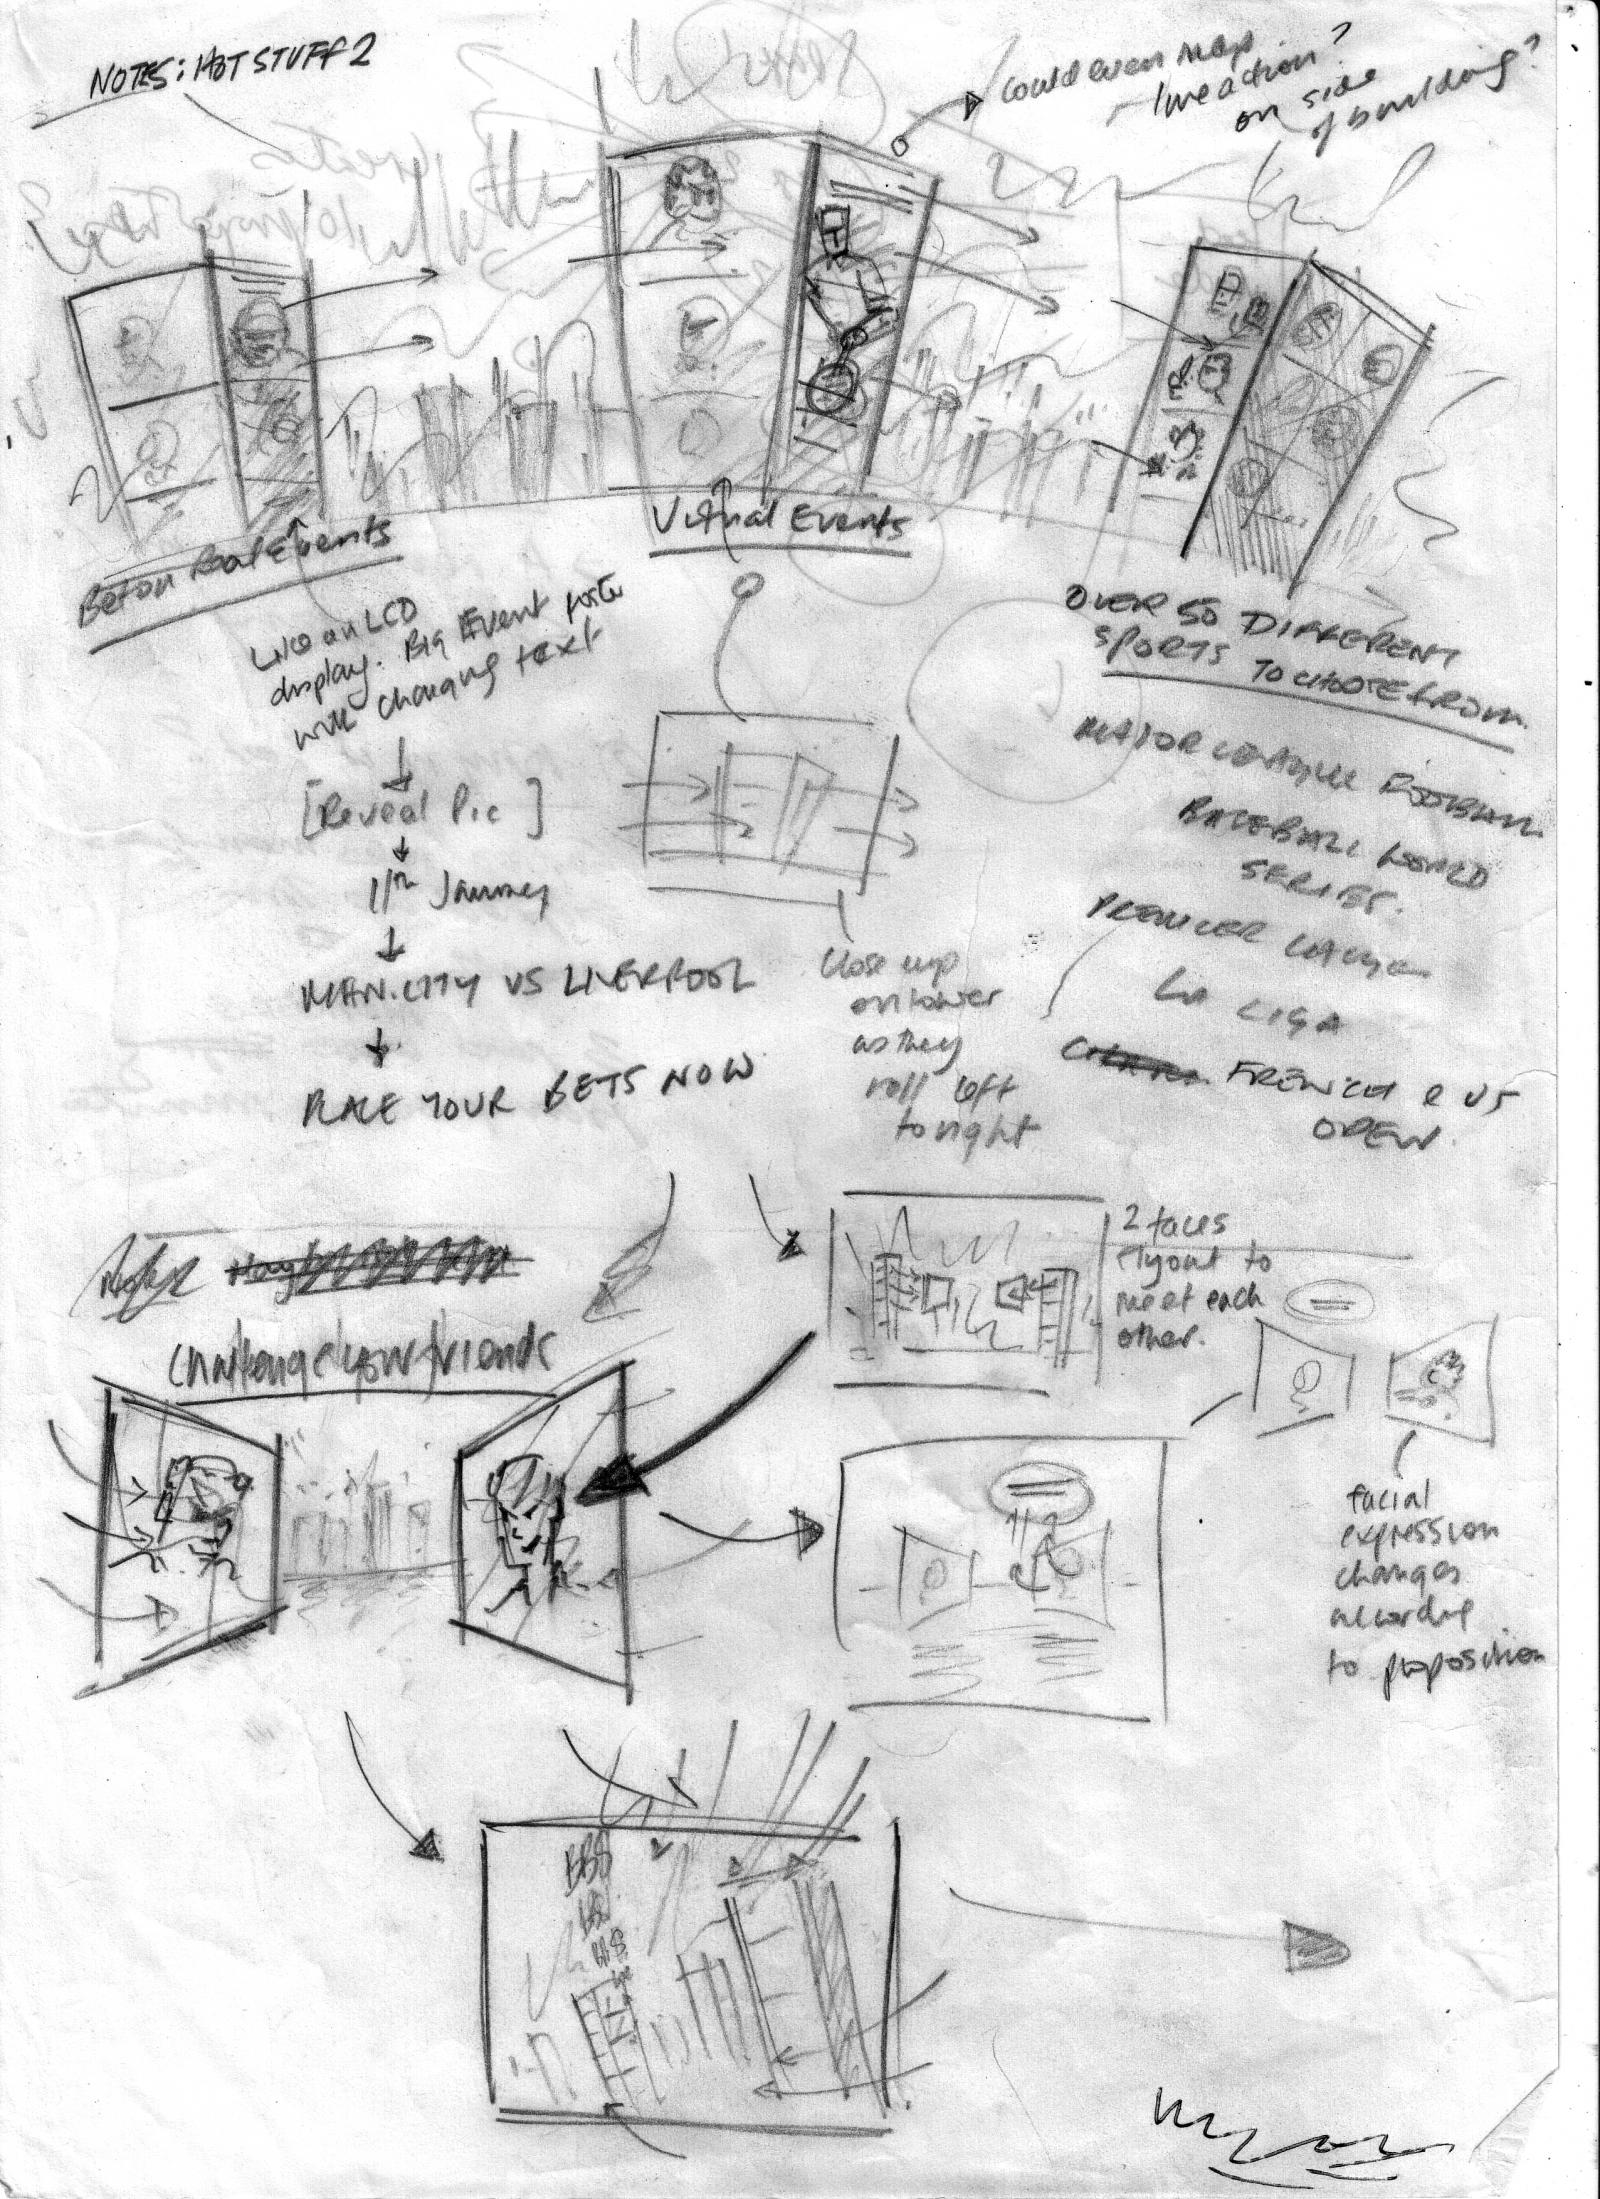 NOTES: HOT STUFF 2
Could even map
live action?
on side
of building?
Bet on Real Events
Virtual Events
OVER 50 DIFFERENT
SPORTS TO CHOOSE FROM
Like an LCD
display. Big Event poster
with changing text
[Reveal Pic]
11th January
MAN.CITY VS LIVERPOOL
PLACE YOUR BETS NOW
Close up
on tower
as they
roll left
to right
MAJOR LEAGUE FOOTBALL
BASEBALL WORLD
SERIES.
PREMIER LEAGUE
LA LIGA
FRENCH & US
OPEN.
2 faces
fly out to
meet each
other.
Challenge your friends
facial
expression
changes
according
to proposition